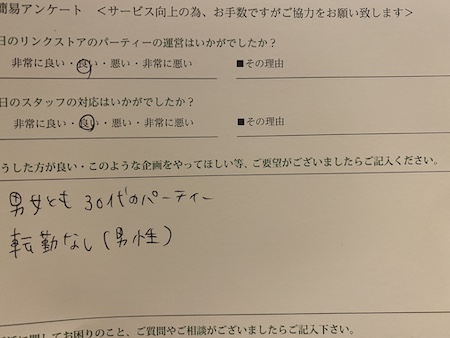 簡易アンケート ＜サービス向上の為、お手数ですがご協力をお願い致します＞
日のリンクストアのパーティーの運営はいかがでしたか？
非常に良い・良い・悪い・非常に悪い ■その理由
日のスタッフの対応はいかがでしたか？
非常に良い・良い・悪い・非常に悪い ■その理由
うした方が良い・このような企画をやってほしい等、ご要望がございましたらご記入ください。
男女とも 30代のパーティー
転勤なし(男性)
に関してお困りのこと、ご質問やご相談がございましたらご記入下さい。